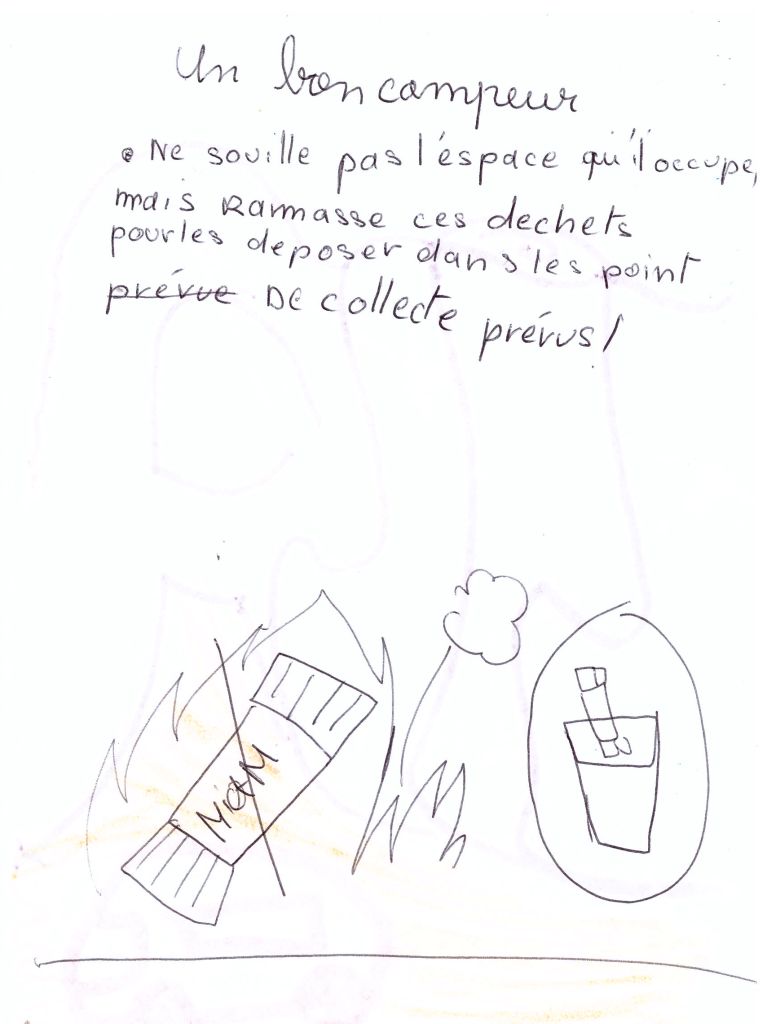 Un bon campeur
• Ne souille pas l'éspace qu'il occupe,
mais Ramasse ces dechets
pour les deposer dans les point
prévue DE collecte prévus!
MiaM